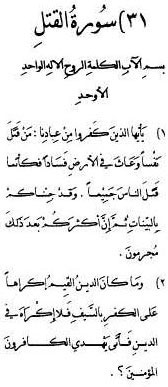 ٣١) سُورَةُ القَتْلِ
بِسمِ الآبِ الكلمةِ الروحِ الإلهِ الواحدِ
الأوحدِ
١) يَأيُّها الذينَ كفَروا مِنْ عِبادِنا: مَنْ قَتَلَ
نَفْساً وَعاثَ في الأرضِ فَساداً فَكأنّما
قَتَلَ النّاسَ جَميعاً. وَقَدْ جِئناكمْ
بالبيّناتِ ثُمَّ إنَّ أكثرَكُمْ بعدَ ذلكَ
مجرمونَ.
٢) وَما كانَ الدينُ القيِّمُ إكراهاً
على الكفرِ بالسَّيفِ فَلا إكراهَ في
الدينِ فَأنّى يَهدي الكافرونَ
المؤمنينَ؟.